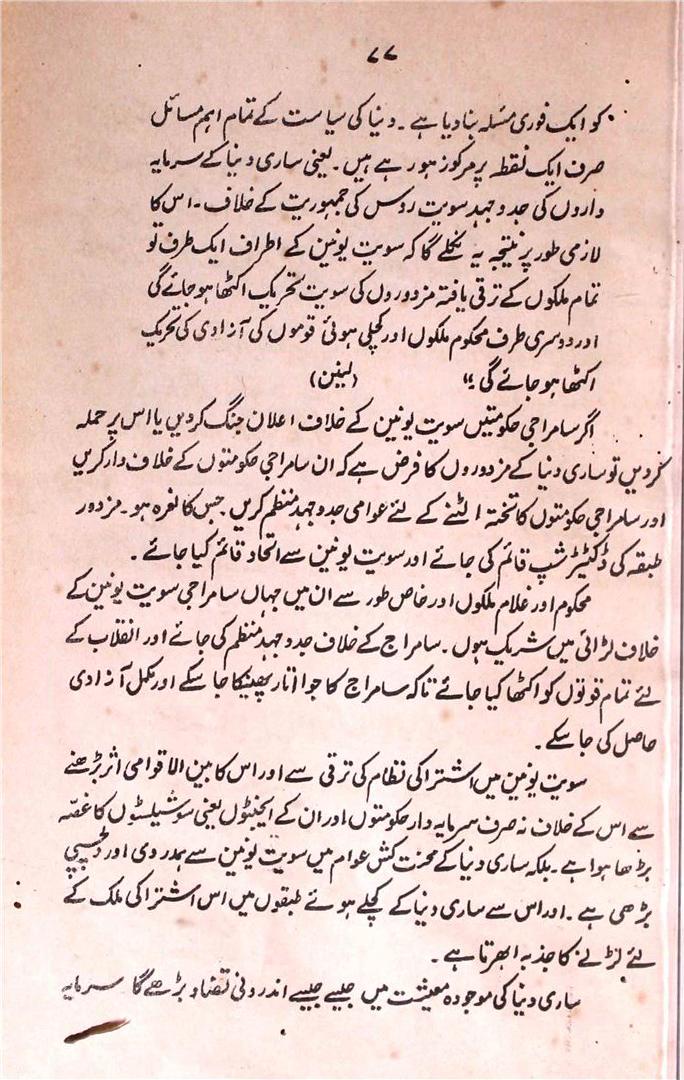 ۷۷
کو ایک فوری مسئلہ بنا دیا ہے۔ دنیا کی سیاست کے تمام اہم مسائل
صرف ایک نقطہ پر مرکوز ہو رہے ہیں۔ یعنی ساری دنیا کے سرمایہ
داروں کی جدوجہد سویت روس کی جمہوریت کے خلاف۔ اس کا
لازمی طور پر نتیجہ یہ نکلے گا کہ سویت یونین کے اطراف ایک طرف تو
تمام ملکوں کے ترقی یافتہ مزدوروں کی سویت تحریک اکٹھا ہو جائے گی
اور دوسری طرف محکوم ملکوں اور کچلی ہوئی قوموں کی آزادی کی تحریک
اکٹھا ہو جائے گی۔" (لینن)
اگر سامراجی حکومتیں سویت یونین کے خلاف اعلان جنگ کردیں یا اس پر حملہ
کردیں تو ساری دنیا کے مزدوروں کا فرض ہے کہ ان سامراجی حکومتوں کے خلاف وار کریں
اور سامراجی حکومتوں کا تختہ الٹنے کے لئے عوامی جدوجہد منظم کریں جس کا نعرہ ہو۔ مزدور
طبقہ کی ڈکٹیٹر شپ قائم کی جائے اور سویت یونین سے اتحاد قائم کیا جائے۔
محکوم اور غلام ملکوں اور خاص طور سے ان میں جہاں سامراجی سویت یونین کے
خلاف لڑائی میں شریک ہوں۔ سامراج کے خلاف جدوجہد منظم کی جائے اور انقلاب کے
لئے تمام قوتوں کو اکٹھا کیا جائے تاکہ سامراج کا جوا اتار پھینکا جا سکے اور مکمل آزادی
حاصل کی جا سکے۔
سویت یونین میں اشتراکی نظام کی ترقی سے اور اس کا بین الاقوامی اثر بڑھنے
سے اس کے خلاف نہ صرف سرمایہ دار حکومتوں اور ان کے ایجنٹوں یعنی سوشیلسٹوں کا غصّہ
بڑھا ہوا ہے۔ بلکہ ساری دنیا کے محنت کش عوام میں سویت یونین سے ہمدردی اور دلچسپی
بڑھی ہے۔ اور اس سے ساری دنیا کے کچلے ہوئے طبقوں میں اس اشتراکی ملک کے
لئے لڑنے کا جذبہ ابھرتا ہے۔
ساری دنیا کی موجودہ معیشت میں جیسے جیسے اندرونی تضاد بڑھے گا سرمایہ